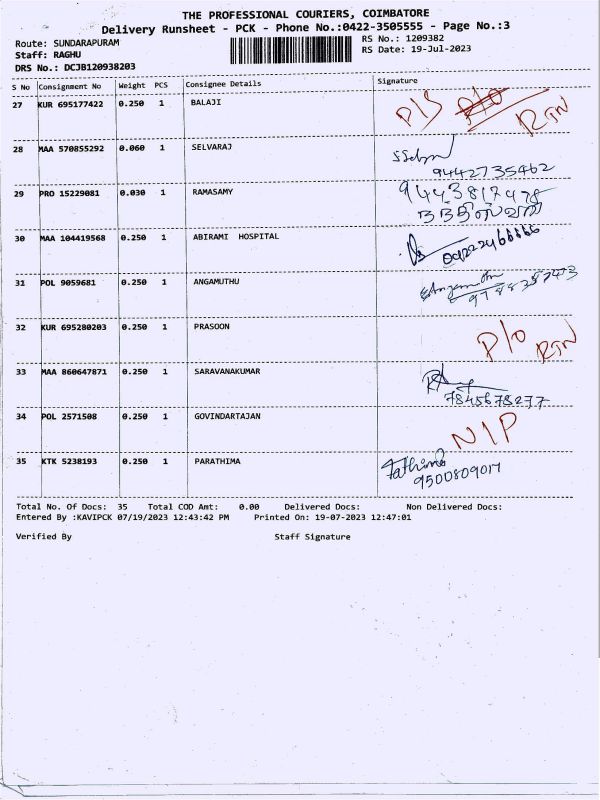 THE PROFESSIONAL COURIERS, COIMBATORE
Delivery Runsheet - PCK - Phone No.:0422-3505555 - Page No.:3
Route: SUNDARAPURAM RS No.: 1209382
Staff: RAGHU RS Date: 19-Jul-2023
DRS No.: DCJB120938203
S No Consignment No Weight PCS Consignee Details Signature
27 KUR 695177422 0.250 1 BALAJI P/S RTN
28 MAA 570855292 0.060 1 SELVARAJ
9442735462
29 PRO 15229081 0.030 1 RAMASAMY 9443817478
30 MAA 104419568 0.250 1 ABIRAMI HOSPITAL
31 POL 9059681 0.250 1 ANGAMUTHU
32 KUR 695280203 0.250 1 PRASOON P/O RTN
33 MAA 860647871 0.250 1 SARAVANAKUMAR
7845678277
34 POL 2571508 0.250 1 GOVINDARTAJAN N/P
35 KTK 5238193 0.250 1 PARATHIMA Fathima
9500809017
Total No. Of Docs: 35 Total COD Amt: 0.00 Delivered Docs: Non Delivered Docs:
Entered By :KAVIPCK 07/19/2023 12:43:42 PM Printed On: 19-07-2023 12:47:01
Verified By Staff Signature